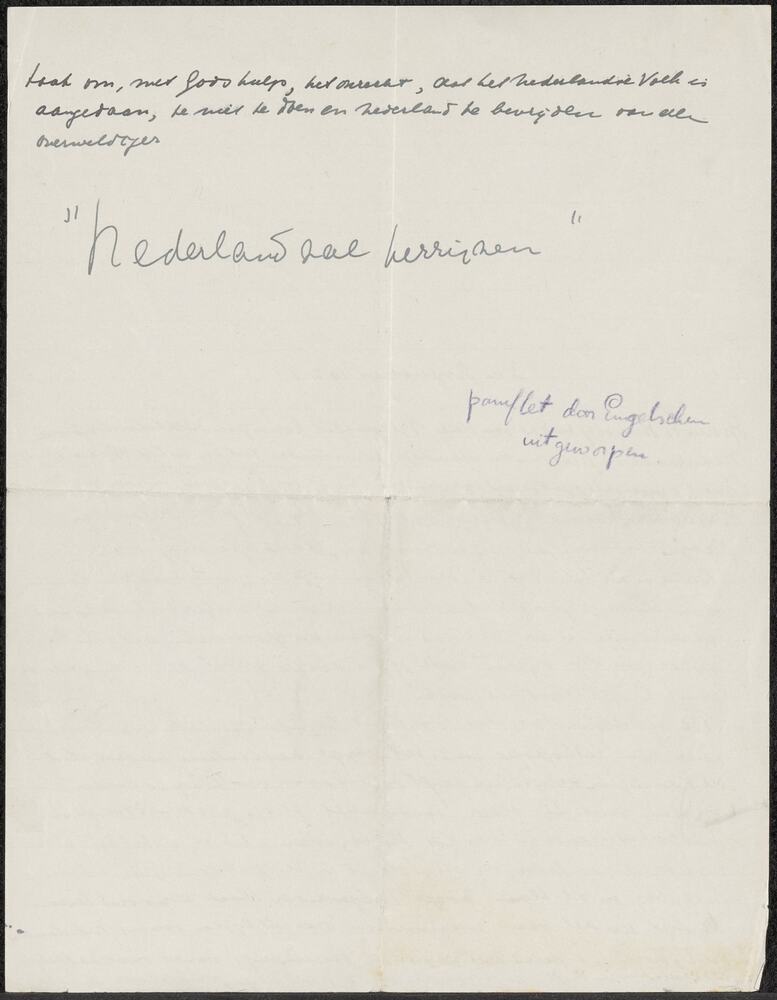 taak om, met Gods hulp, het onrecht, dat het Nederlandse Volk is
aangedaan, te niet te doen en Nederland te bevrijden van den
overweldiger
"Nederland zal herrijzen"
pamflet door Engelschen
uitgeworpen.